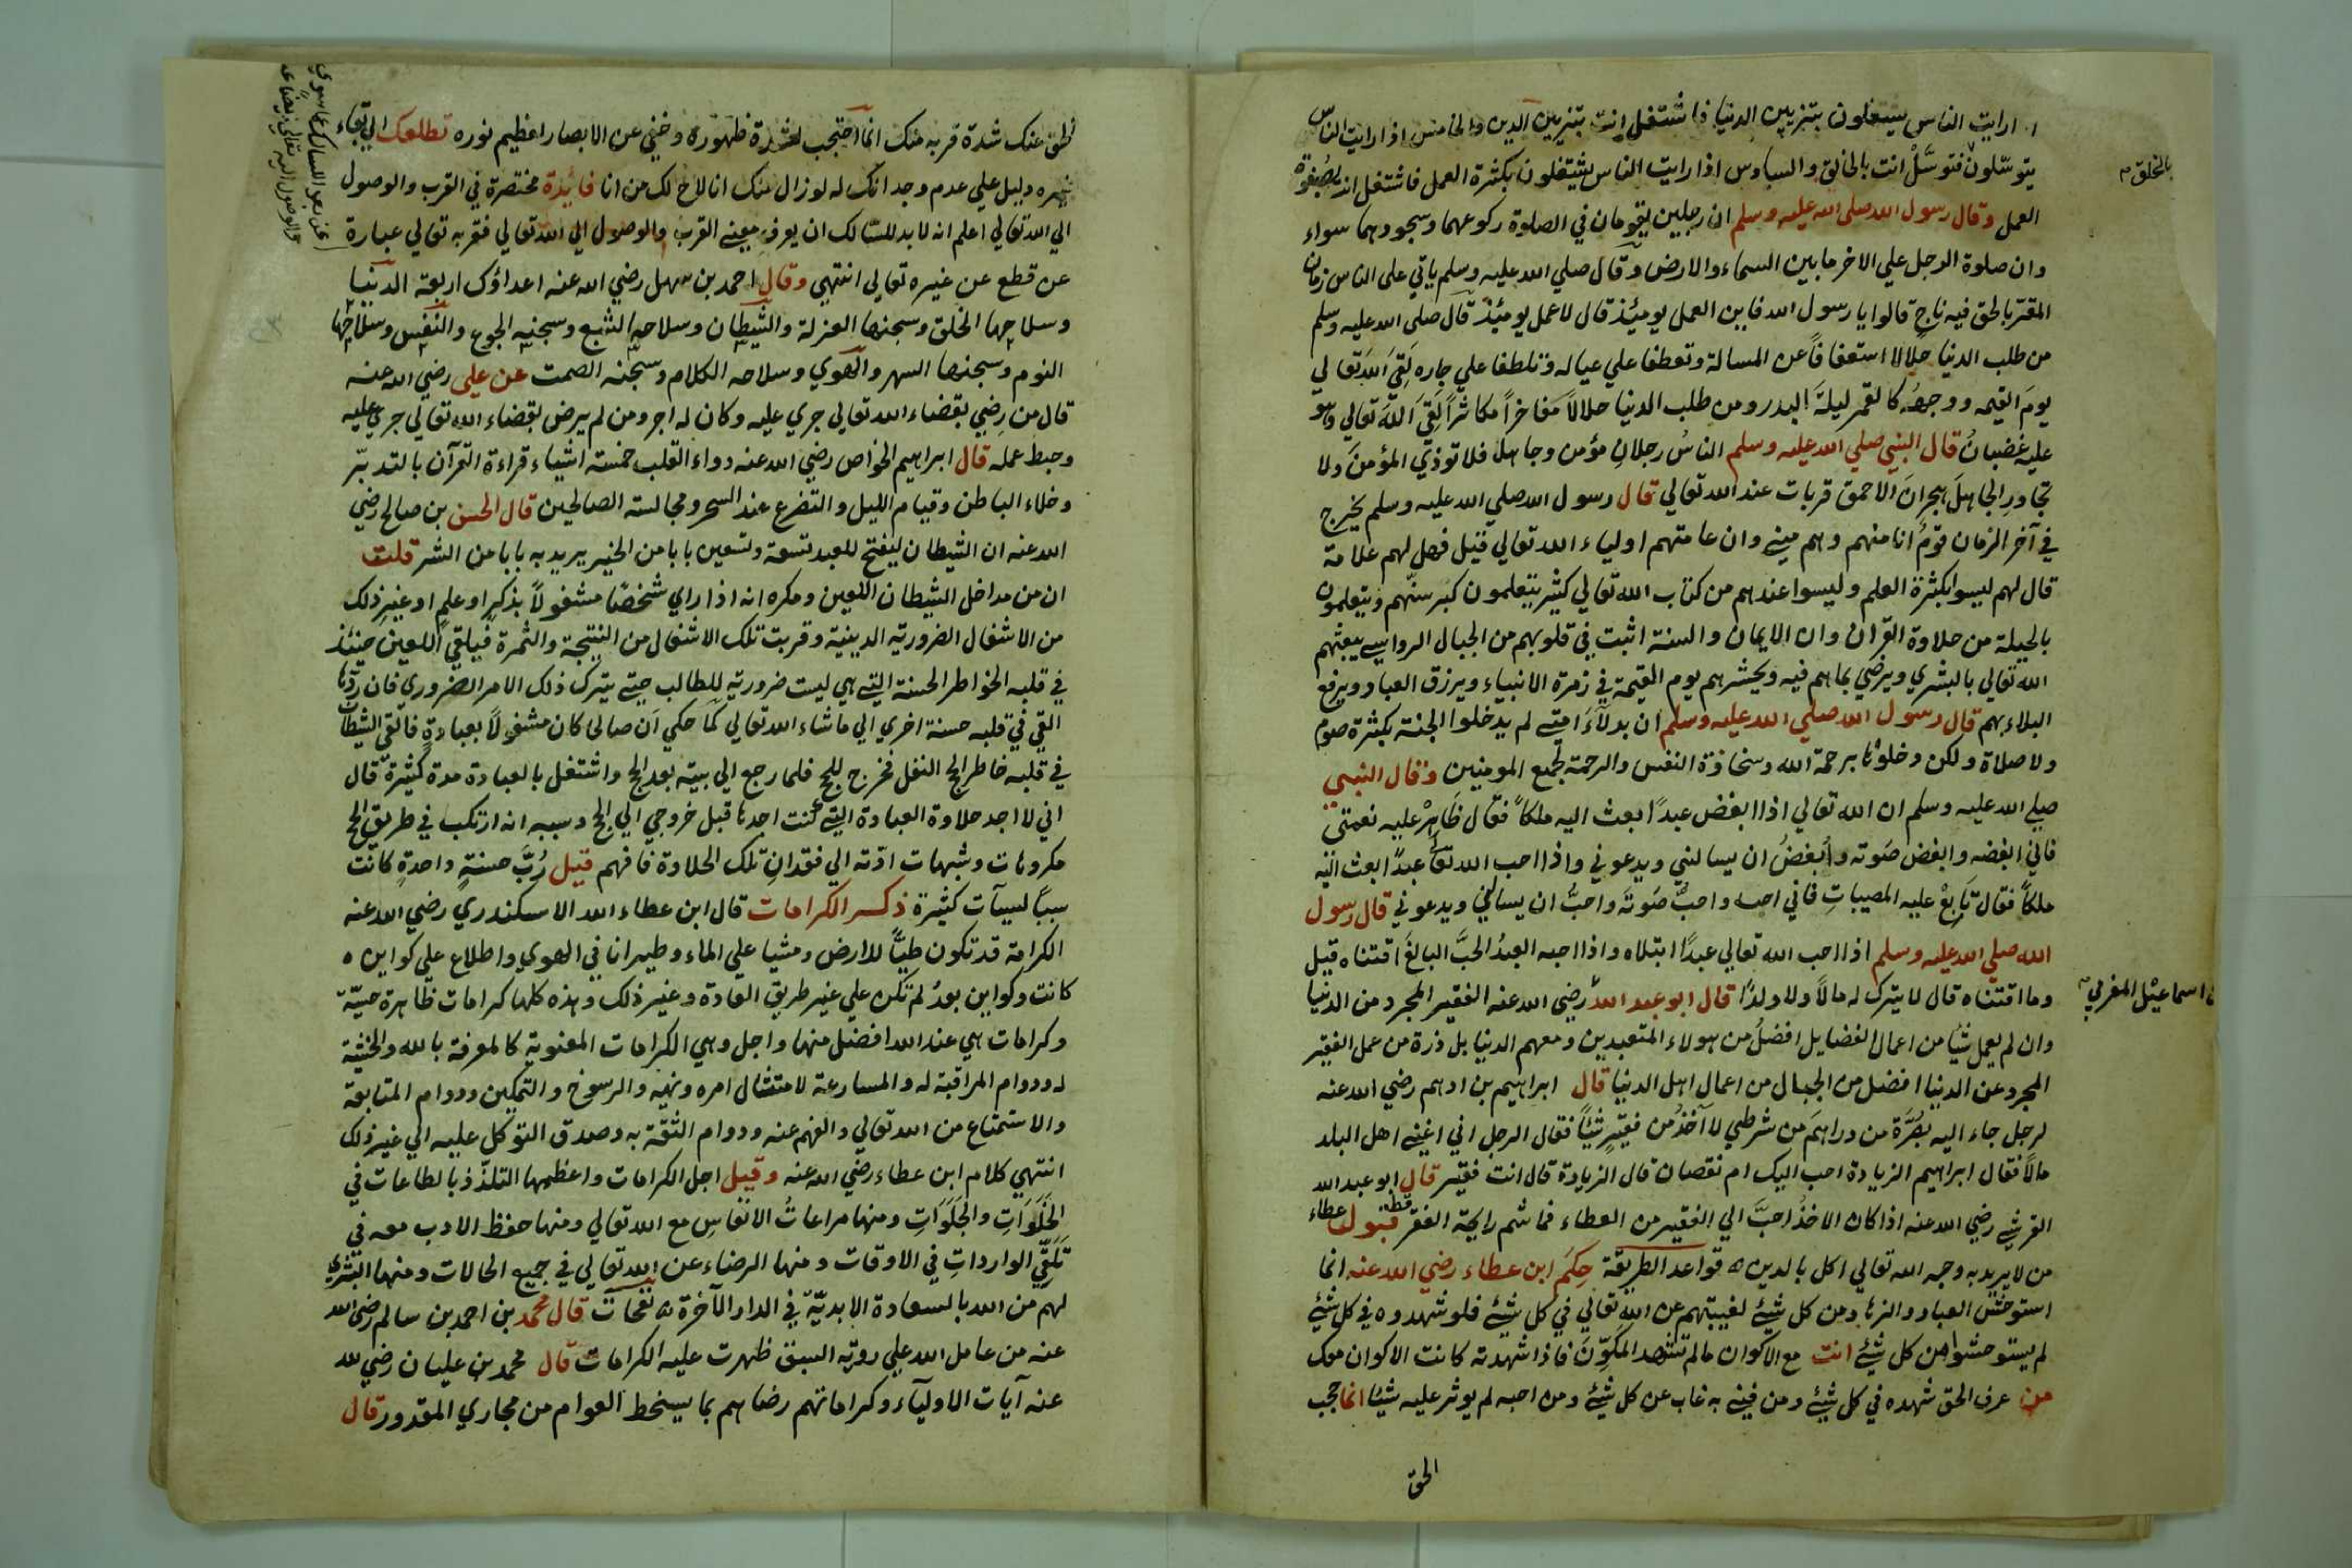 اذا رايت الناس يشتغلون بتزيين الدنيا فاشتغل انت بتزيين الدين والخامس اذا رايت الناس
بالمخلوق
يتوسّلون فتوسَّلْ انت بالخالق والسادس اذا رايت الناس يشتغلون بكثرة العمل فاشتغل انت بصفوة
العمل وقال رسول الله صلى الله عليه وسلم ان رجلين يقومان في الصلوة ركوعهما وسجودهما سواء
وان صلوة الرجل علي الاخر ما بين السماء والارض وقال صلي الله عليه وسلم ياتي على الناس زمان
المقتر بالحق فيه ناج قالوا يا رسول الله فاين العمل يومئذ قال لا عمل يومئذ قال صلى الله عليه وسلم
من طلب الدنيا حلالا استعفافاً عن المسالة وتعطفا علي عياله وتلطفا علي جاره لَقِيَ اللهَ تعالي
يومَ القيمة ووجهُه كالقمر ليلةَ البدر ومن طلب الدنيا حلالاً مفاخراً مكاثراً لَقِيَ اللهَ تعالي وهو
عليه غضبانُ قال النبي صلي الله عليه وسلم الناسُ رجلانِ مؤمن وجاهل فلا توذي المؤمنَ ولا
تجاورِ الجاهلَ هجرانَ الاحمق قربات عند الله تعالي قال رسول الله صلي الله عليه وسلم يخرج
في آخر الزمان قومٌ انا منهم وهم مني وان عامتهم اولياء الله تعالي قيل فهل لهم علامة
قال لهم ليسوا بكثرة العلم وليسوا عندهم من كتاب الله تعالي كثير يتعلمون كبر سنّهم ويتعلمون
بالحيلة من حلاوة القرآن وان الايمان والسنة اثبت في قلوبهم من الجبال الرواسي يبعثهم
الله تعالي بالبشري ويرضي بما هم فيه ويحشرهم يوم القيمة في زمرة الانبياء ويرزق العباد ويرفع
البلاء بهم قال رسول الله صلي الله عليه وسلم ان بدلآءَ امتي لم يدخلوا الجنة بكثرة صوم
ولا صلاة ولكن دخلوها برحمة الله وسخاوة النفس والرحمة لجميع المومنين وقال النبي
صلي الله عليه وسلم ان الله تعالي اذا ابغض عبدًا بعث اليه ملكاً فقال ظَاهِرْ عليه نعمتي
فاني ابغضه وابغض صَوته وأبغضُ ان يسالني ويدعوني واذا احب الله تعالى عبدًا بعث اليه
ملكاً فقال تَابِعْ عليه المصيباتِ فاني احبه واحبُّ صَوتَه واحبُّ ان يسالني ويدعوني قال رسول
الله صلي الله عليه وسلم اذا احب الله تعالي عبدًا ابتلاه واذا احبه العبدُ الحبَّ البالغَ اقتناه قيل
بن اسماعيل المغربي
وما اقتناه قال لا يترك له مالاً ولا ولدًا قال ابو عبد الله رضي الله عنه الفقير المجرد من الدنيا
وان لم يعمل شيا من اعمال الفضايل افضلُ من هولاء المتعبدين ومعهم الدنيا بل ذرة من عمل الفقير
المجرد عن الدنيا افضل من الجبال من اعمال اهل الدنيا قال ابراهيم بن ادهم رضي الله عنه
لرجل جاء اليه بصُرَّة من دراهمَ من شرطي لا آخذُ من فقيرٍ شيأً فقال الرجل اني اغني اهل البلد
مالاً فقال ابراهيم الزيادة احب اليك ام نقصان قال الزيادة قال انت فقير قال ابو عبد الله
القرشي رضي الله عنه اذا كان الاخذُ احبَّ الي الفقير من العطاء فما شم رايحة الفقر قط قبول عطاء
من لا يريد به وجه الله تعالي اكل بالدين ه قواعد الطريقة حِكَم ابن عطاء رضي الله عنه انما
استوحش العباد والزهاد من كل شيئ لغيبتهم عن الله تعالي في كل شيئ فلو شهدوه في كل شيئ
لم يستوحشوا من كل شيئ انت مع الاكوان ما لم تشهد المكوِّنَ فاذا شهدته كانت الاكوان معك
من عرف الحق شهده في كل شيئ ومن فني به غاب عن كل شيئ ومن احبه لم يوثر عليه شيئا انما حجب
الحق
الحق عنك شدة قربه منك انما احتجب لشدة ظهوره وخفي عن الابصار لعظيم نوره تطلعك الي بقاء
غيره دليل علي عدم وجدانك له لو زال عنك انا لاح لك من انا فائدة مختصرة في القرب والوصول
الي الله تعالي اعلم انه لا بد للسالك ان يعرف معنى القرب والوصول الي الله تعالي فقربه تعالي عبارة
عن قطع عن غيره تعالي انتهي وقال احمد بن سهل رضي الله عنه اعداؤك اربعة الدنيا
وسلاحها الخلق وسجنها العزلة والشيطان وسلاحه الشبع وسجنه الجوع والنفس وسلاحها
النوم وسجنها السهر والهوي وسلاحه الكلام وسجنه الصمت عن علي رضي الله عنه
قال من رضِي بقضاء الله تعالي جري عليه وكان له اجر ومن لم يرض بقضاء الله تعالي جري عليه
وحبط عمله قال ابراهيم الخواص رضي الله عنه دواء القلب خمسة اشياء قراءة القرآن بالتدبّر
وخلاء الباطن وقيام الليل والتضرع عند السحر ومجالسة الصالحين قال الحسن بن صالح رضي
الله عنه ان الشيطان ليفتح للعبد تسعة وتسعين بابا من الخير يريد به بابا من الشر قلت
ان من مداخل الشيطان اللعين ومكره انه اذا راي شخصًا مشغولاً بذكرٍ او علمٍ او غيرِ ذلك
من الاشغال الضرورية الدينية وقربت تلك الاشغال من النتيجة والثمرة فيلقي اللعين حينئذ
في قلبه الخواطر الحسنة التي هي ليست ضرورية للطالب حتي يترك ذلك الامر الضروري فان ردّها
القي في قلبه حسنة اخري الي ما شاء الله تعالي كما حكي ان صالحا كان مشغولاً بعبادةٍ فالقي الشيطان
في قلبه خاطر الحج النفل فخرج للحج فلما رجع الي بيته بعد الحج واشتغل بالعبادة مدة كثيرة قال
اني لا اجد حلاوة العبادة التي كنت اجدها قبل خروجي الي الحج وسببه انه ارتكب في طريق الحج
مكروهات وشبهات ادّته الي فقدانِ تلك الحلاوة فافهم قيل رُبَّ حسنةٍ واحدةٍ كانت
سبباً لسيآت كثيرة ذكر الكرامات قال ابن عطاء الله الاسكندري رضي الله عنه
الكرامة قد تكون طيًّا للارض ومشيا علي الماء وطيرانا في الهوي واطلاع علي كواين ه
كانت وكواين بعدُ لم تكن علي غير طريق العادة وغير ذلك وهذه كلها كرامات ظاهرة حسيّة
وكرامات هي عند الله افضل منها واجل وهي الكرامات المعنوية كالمعرفة بالله والخشية
له ودوام المراقبة له والمسارعة لامتثال امره ونهيه والرسوخ والتمكين ودوام المتابعة
والاستمتاع من الله تعالي والفهم عنه ودوام الثقة به وصدق التوكل عليه الي غير ذلك
انتهي كلام ابن عطاء رضي الله عنه وقيل اجل الكرامات واعظمها التلذّذ بالطاعات في
الخَلَوَاتِ والجَلَوَاتِ ومنها مراعاتُ الانفاسِ مع الله تعالي ومنها حفظ الادب معه في
تَلَقِّي الوارداتِ في الاوقات ومنها الرضاء عن الله تعالي في جميع الحالات ومنها البشري
لهم من الله بالسعادة الابديّة في الدار الآخرة ه نفحات قال محمد بن احمد بن سالم رضي الله
عنه من عامل الله علي روية السبق ظهرت عليه الكرامات قال محمد بن عليان رضي لله
عنه آيات الاوليآء وكراماتهم رضاهم بما يسخط العوام من مجاري المقدور قال